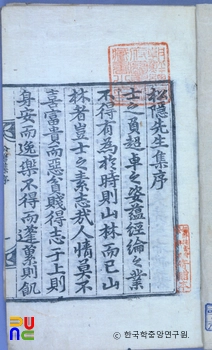 松隱先生集序
士之負超卓之姿蘊經綸之業
不得有為於時則山林而已山
林者豈士之素志哉人情莫不
喜富貴而惡貧賤得志于上則
身安而逸樂不得而蓬藁則飢
PUNC
© 한국학중앙연구원